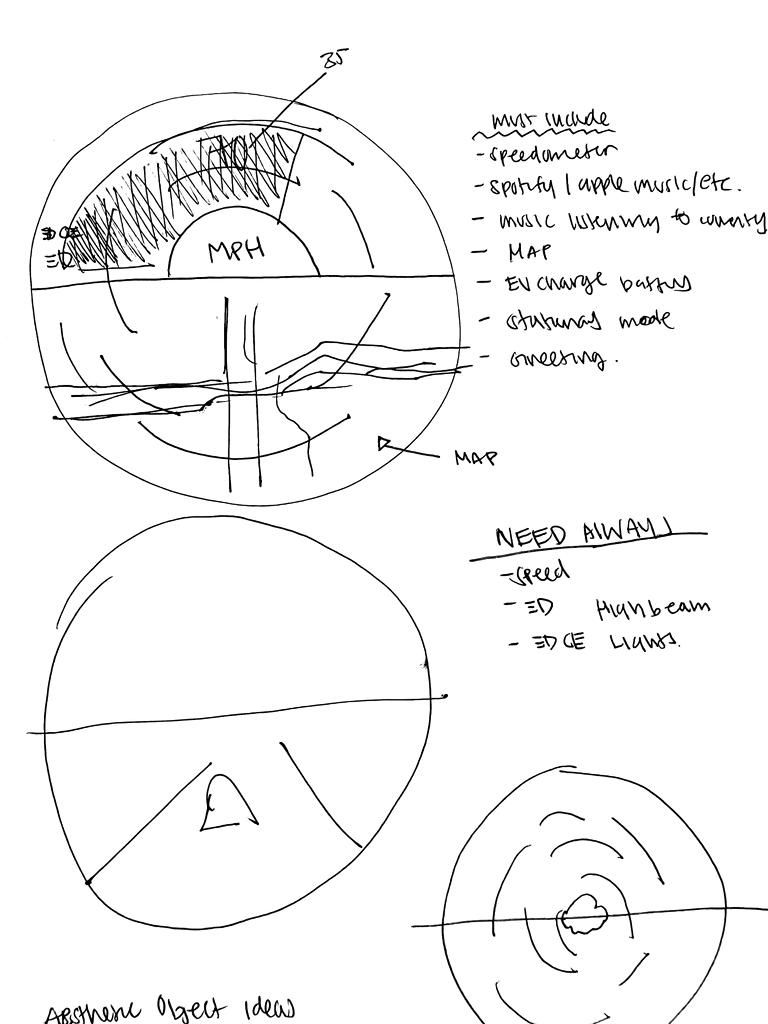 35
must include
- speedometer
- spotify / apple music/etc.
- music listening to
- MAP
- EV charge battery
- mode
- Greeting.
70
MPH
MAP
NEED ALWAYS
- speed
- ED Highbeam
- EDGE Lights.
Aesthetic Object Ideas